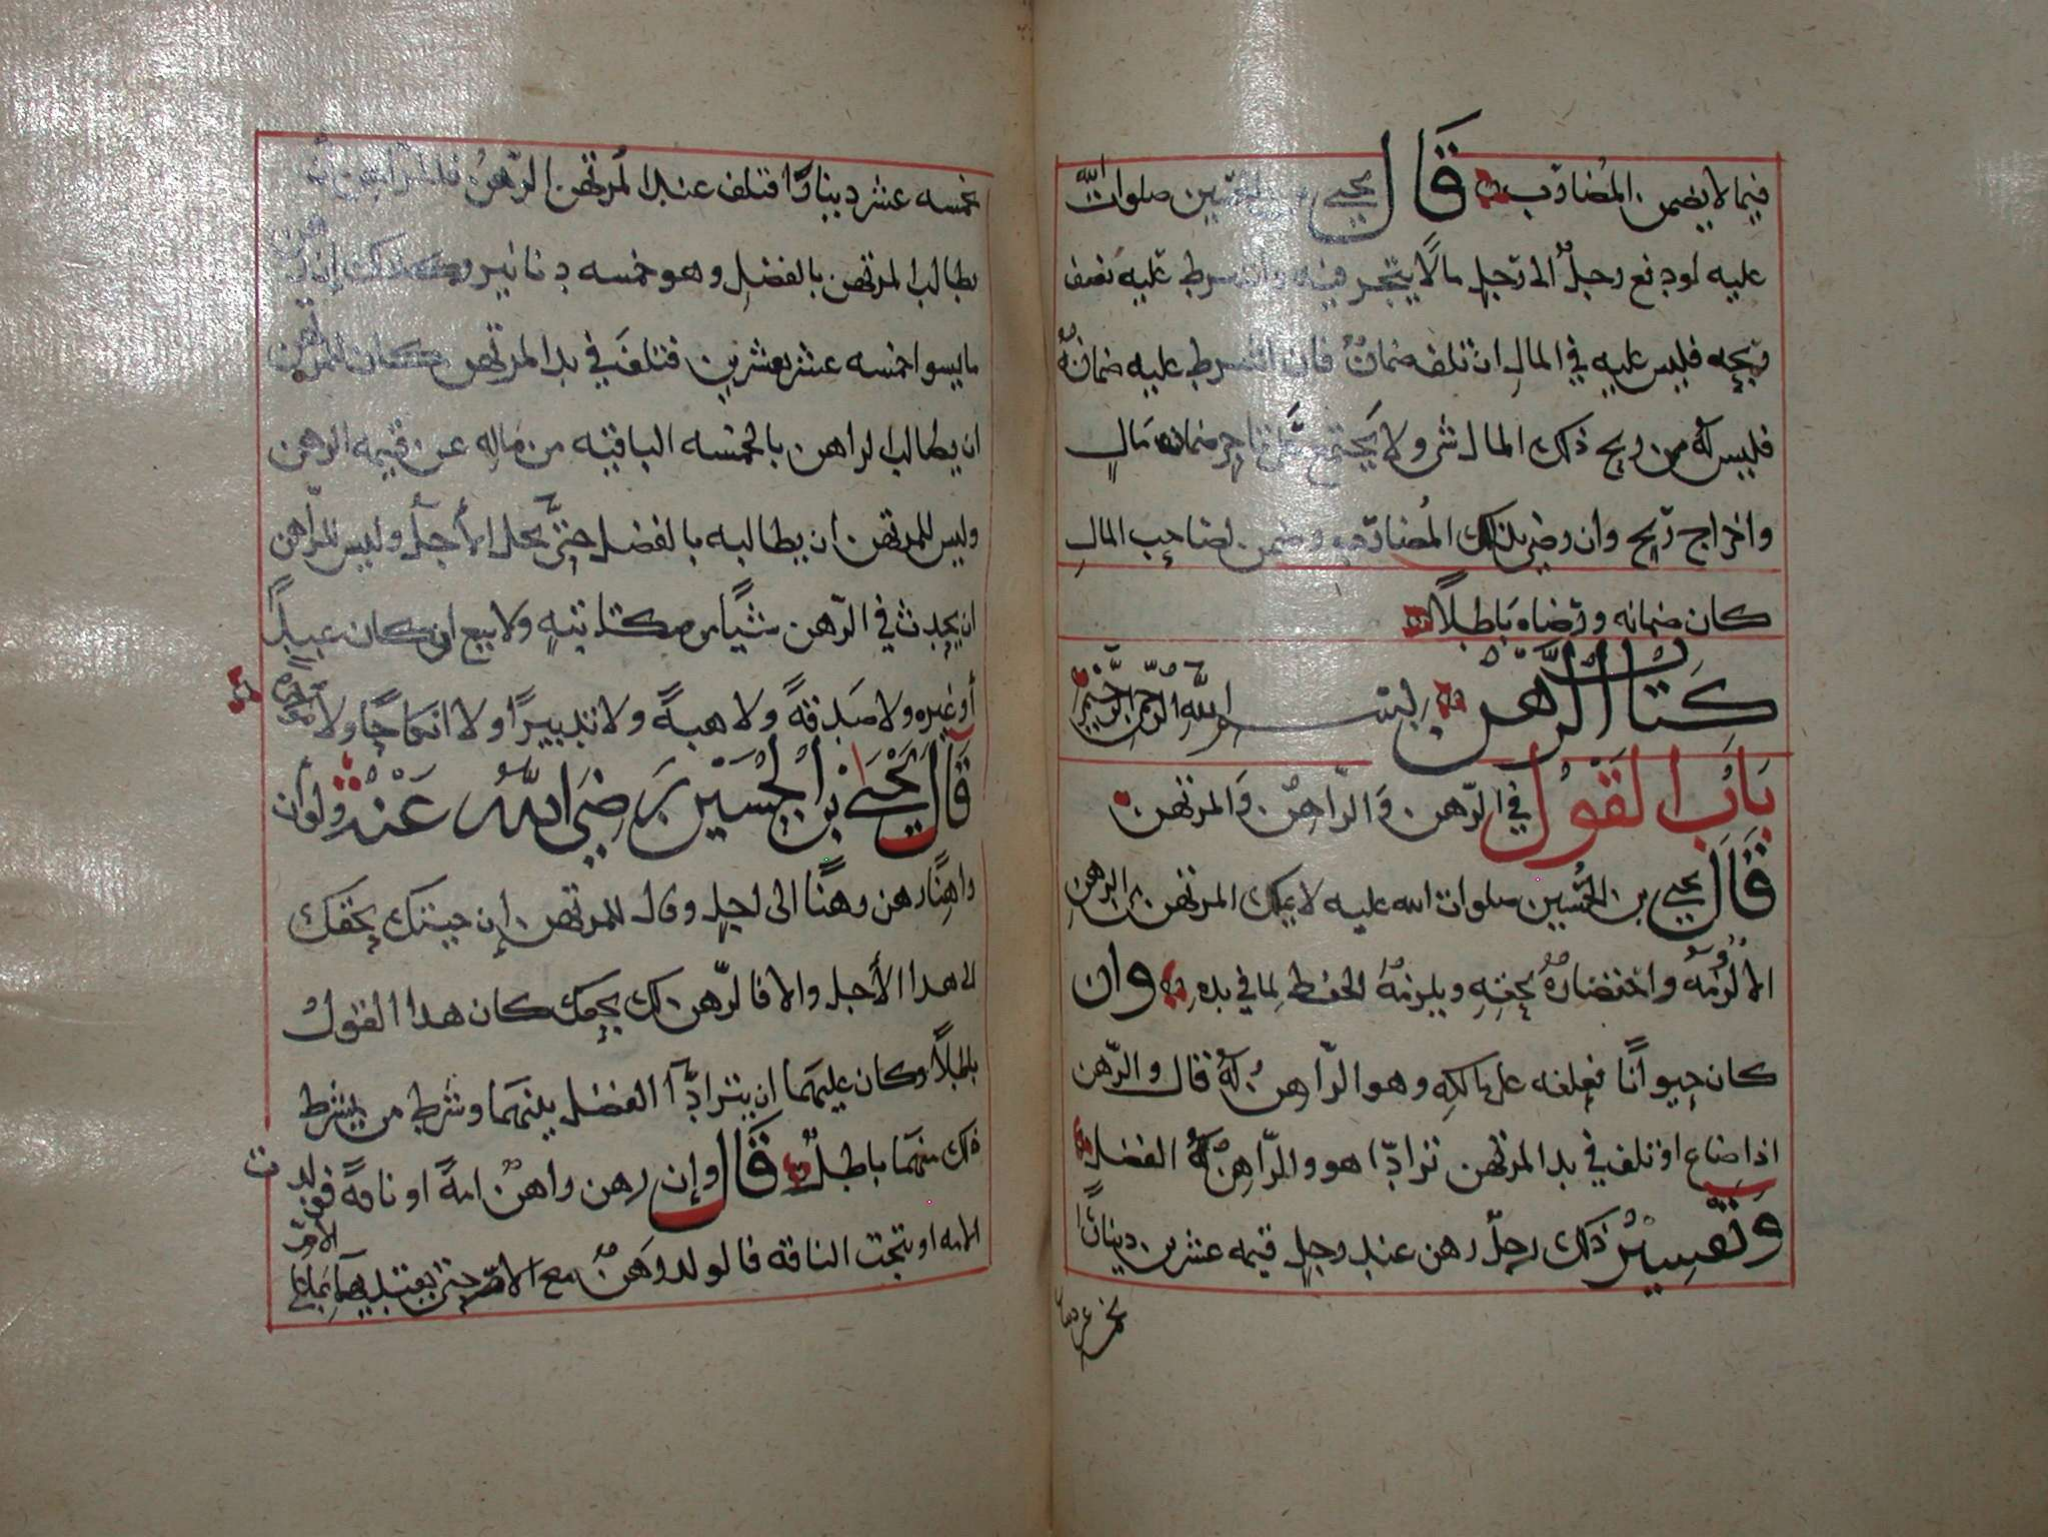 فيما لا يضمن المضارب قال يحيى بن الحسين صلوات الله
عليه لو دفع رجلٌ الى رجلٍ مالًا يتجر فيه وان شرط عليه نصف
ربحه فليس عليه في المال ان تلف ضمانٌ فان اشترط عليه ضمانهُ
فليس له من ربح ذلك المال شي ولا يجتمع على تاجر ضمان مالٍ
واخراج ربح وان رضي بذلك المضارب وضمن لصاحب المالِ
كان ضمانه ورضاه باطلًا
كتاب الرَّهن بسم الله الرحمن الرحيم
بَابُ القَولِ في الرّهن وَالرّاهن وَالمرتهن
قَالَ يحيى بن الحُسين صلوات الله عليه لا يملك المرتهن من الرهن
الا لزمهُ واختضارهُ بحقهِ ويلزمهُ الحفظ لما في يدهِ وان
كان حيوانًا فعلفه على مالكهِ وهو الرّاهنُ لهُ قال والرّهن
اذا ضاع او تلف في يد المرتهن ترادّا هو والرّاهنُ لهُ الفضل
وتفسيرُ ذلك رجلٌ رهن عند رجلٍ قيمه عشرين دينارًا
بخمسه عشر دينارًا فتلف عند المرتهن الرّهنُ فللراهن أن
يطالب المرتهن بالفضلِ وهو خمسه دنانير وكذلك إن رهن
ما يسوا خمسه عشر بعشرين فتلفَ في يد المرتهن كان للمرتهن
ان يطالب الراهن بالخمسه الباقيه من مَالهِ عن قيمه الرهن
وليس للمرتهن ان يطالبه بالفضل حتىَّ يحل الأجلُ وليس للرّاهن
ان يحدث في الرّهن شيًا من مكتابتهٍ ولا بيع ان كان عبدًا
أو غيره ولا صَدقةً ولا هبةً ولا تدبيرًا ولا انكاحًا ولا مواجرهً
قَالَ يَحْيَى بْن الْحُسَيْن رَضِيَ اللَّهُ عَنْهُ ولو أن
راهِنًا رهن رهنًا الى اجلٍ وقال للمرتهن إن جيتك بحقك
الى هذا الأجل والا فالرّهن لك بحقك كان هذا القولُ
باطلًا وكان عليهمَا ان يترادّآ الفضل بينهمَا وشرط من يشرط
ذلك منهمَا باطلٌ قَالَ وإن رهن راهنٌ امةً او ناقةً فولدت
الامه او نتجت الناقه فالولد رَهنٌ مع الام حتى يفتديهمَا بمَا